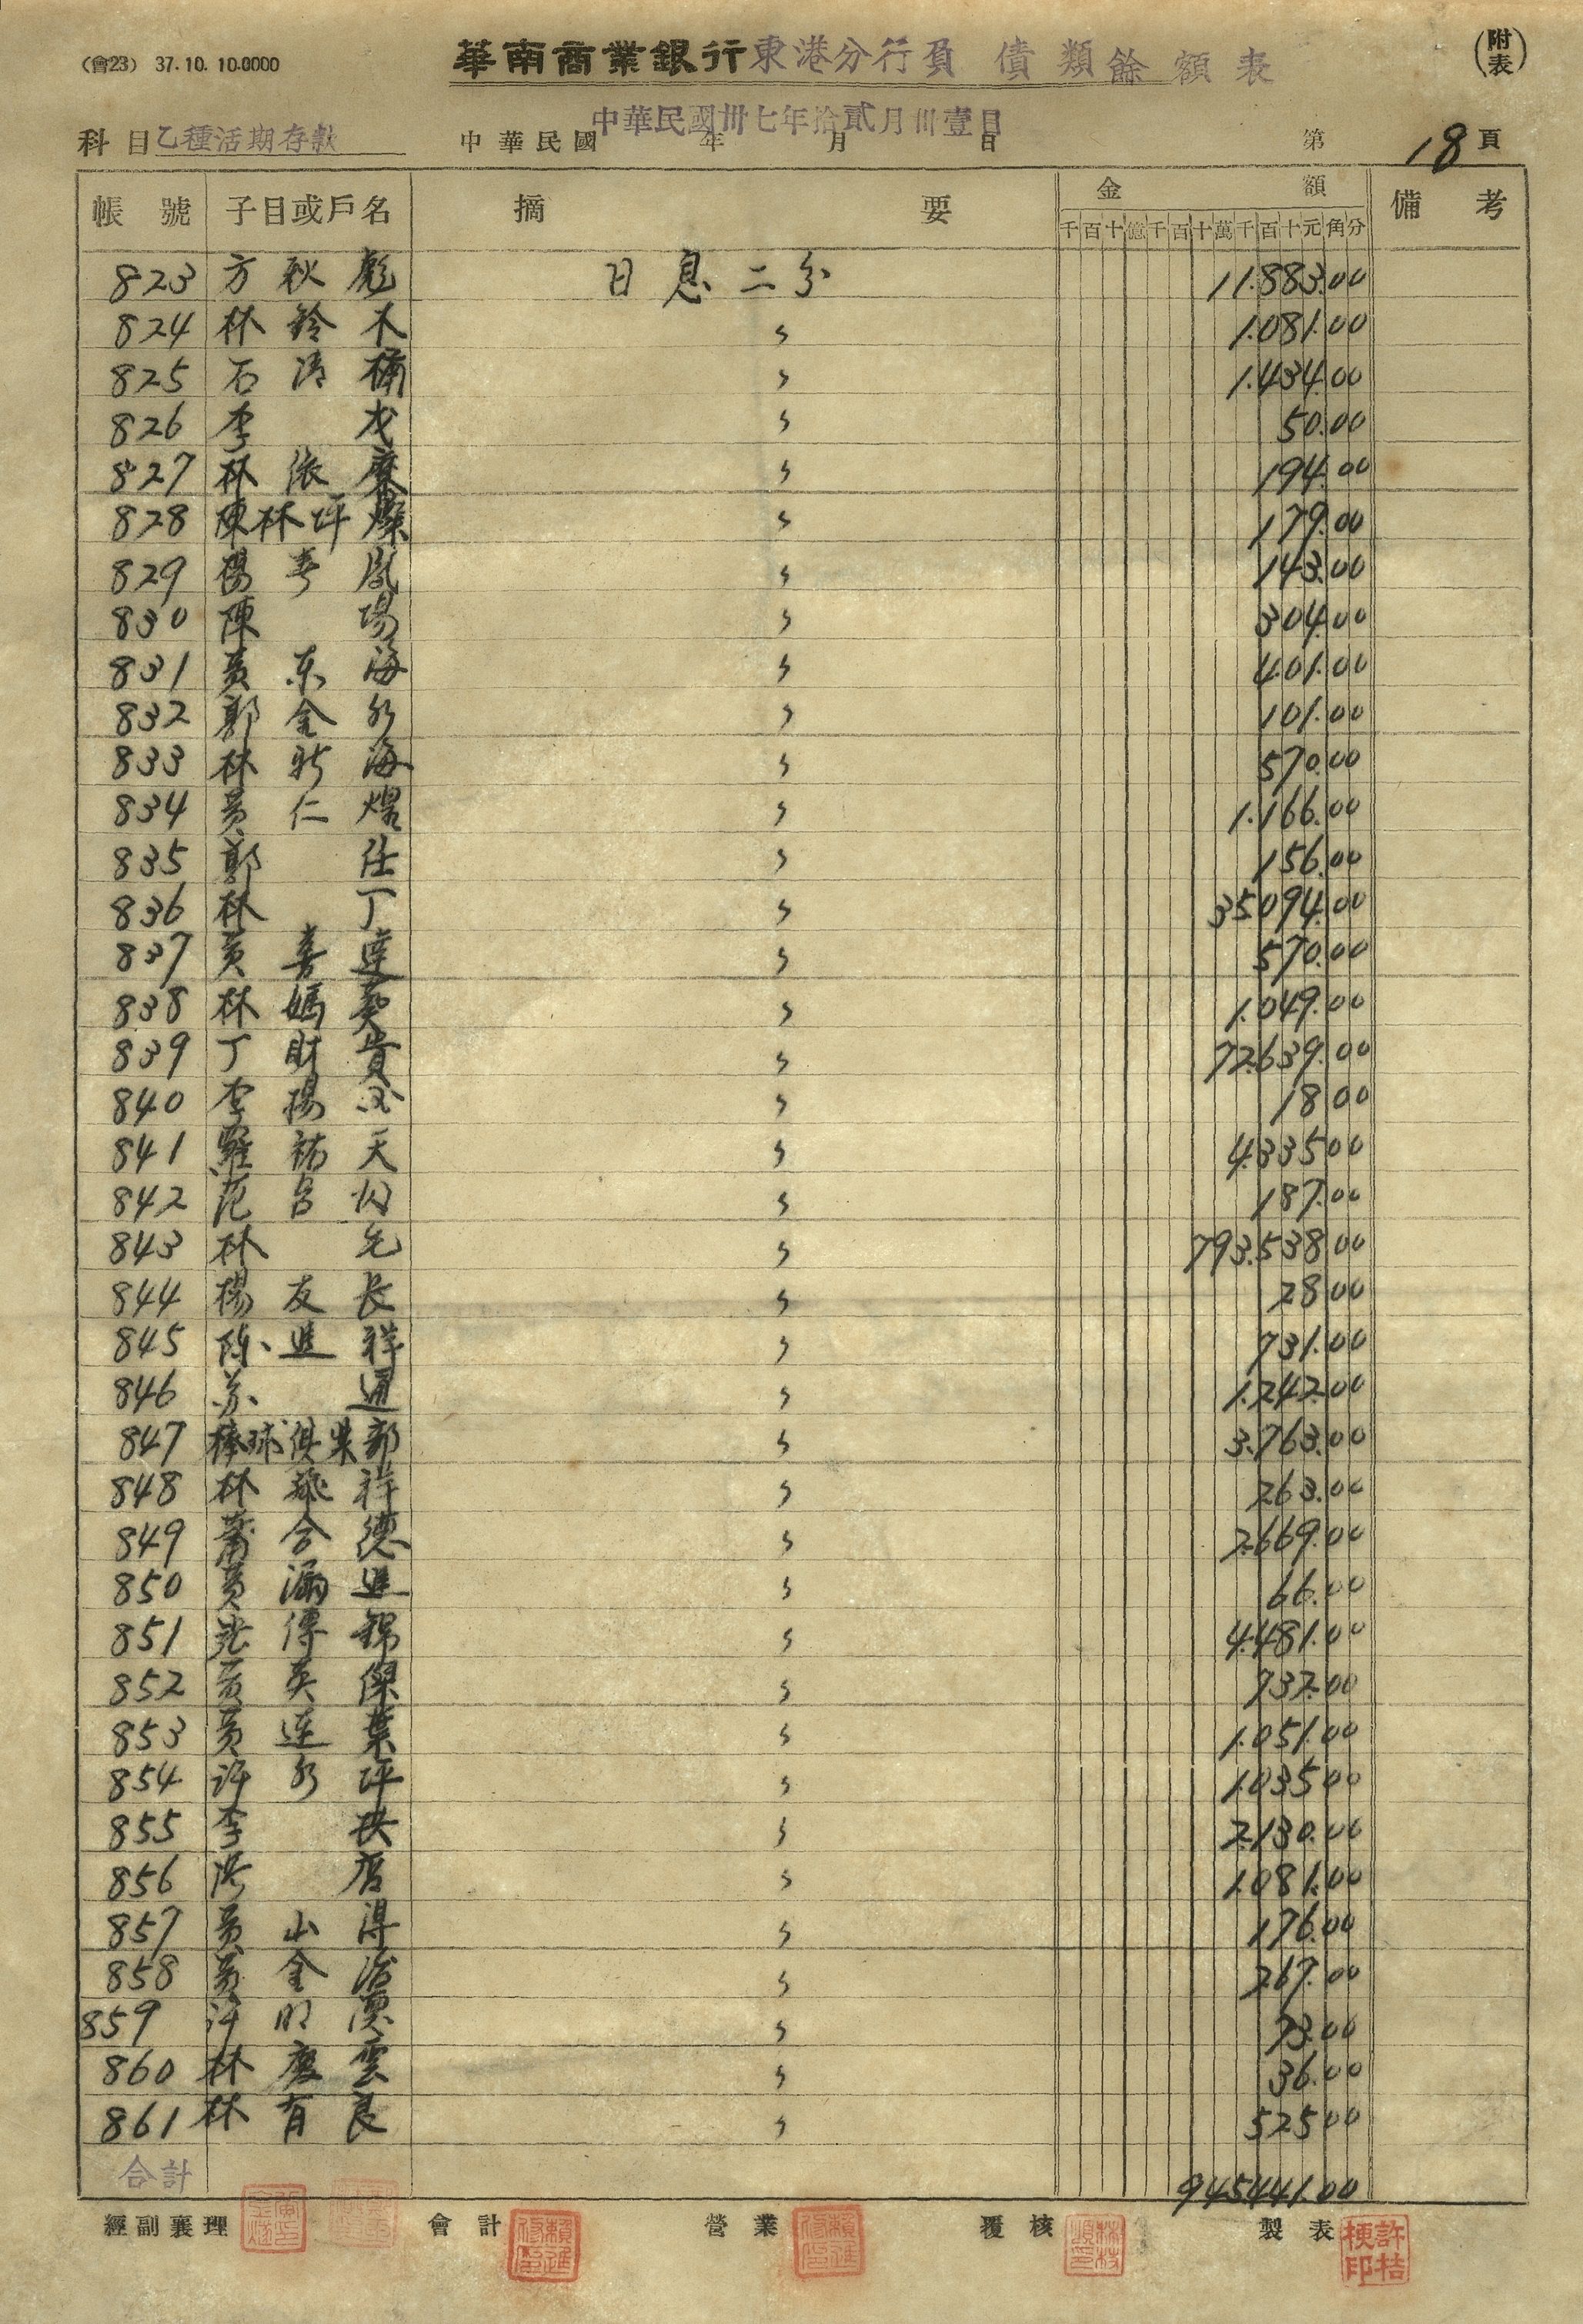 (會23) 37.10.10.0000 華南商業銀行東港分行負債類餘額表 (附表)
科目 乙種活期存款 中華民國 年 月 日 中華民國卅七年拾貳月卅壹日 第 18 頁
帳號 子目或戶名 摘要 金額 備考
千百十億千百十萬千百十元角分
823 方秋彪 日息二分 11.883.00
824 林鈴木 〃 1.081.00
825 石清 〃 1.434.00
826 李 〃 50.00
827 林依 〃 194.00
828 陳林坪 〃 179.00
829 楊春鳳 〃 143.00
830 陳場 〃 304.00
831 黃東海 〃 401.00
832 郭金水 〃 101.00
833 林新海 〃 570.00
834 黃仁煌 〃 1.166.00
835 郭仕 〃 156.00
836 林丁 〃 35094.00
837 黃喜達 〃 570.00
838 林媽葵 〃 1.049.00
839 丁財貴 〃 72.639.00
840 李楊 〃 18.00
841 羅祐天 〃 4.335.00
842 范 〃 187.00
843 林 〃 793.538.00
844 楊友長 〃 28.00
845 陳進祥 〃 731.00
846 蘇通 〃 1.242.00
847 棒球俱樂部 〃 3.763.00
848 林飛祥 〃 263.00
849 蕭令德 〃 2.669.00
850 黃漏進 〃 66.00
851 傳錦 〃 4.481.00
852 黃英傑 〃 732.00
853 黃連葉 〃 1.051.00
854 許水坪 〃 1.035.00
855 李 〃 2.130.00
856 洪 〃 1.081.00
857 黃山得 〃 176.00
858 黃金治 〃 267.00
859 許明 〃 73.00
860 林慶雲 〃 36.00
861 林有良 〃 525.00
合計 945441.00
經副襄理 會計 營業 覆核 製表